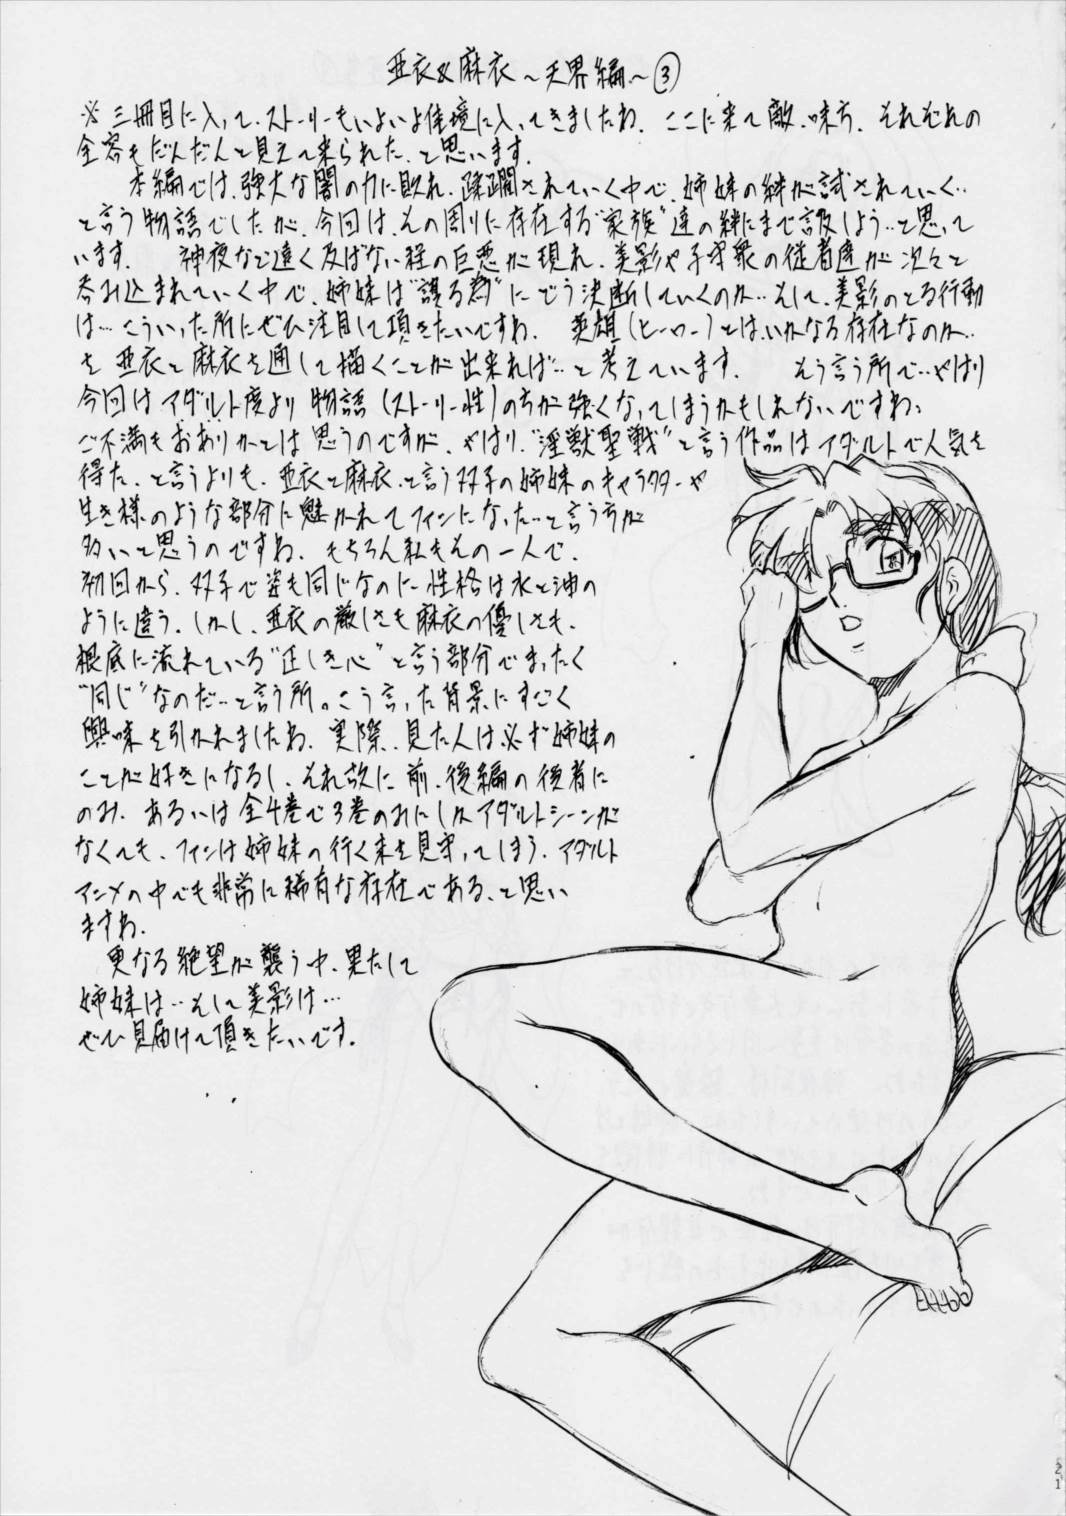 亜衣&麻衣～天界編～③
※三冊目に入って、ストーリーもいよいよ佳境に入ってきましたわ。ここに来て敵、味方、それぞれの
全容もだんだんと見えて来られた、と思います。
本編では、強大な闇の力に敗れ、蹂躙されていく中で、姉妹の絆が試されていく…
と言う物語でしたが、今回は、その周りに存在する"家族"達の絆にまで言及しよう…と思って
います。 神夜など遠く及ばない程の巨悪が現れ、美影や子守衆の従者達が次々と
呑み込まれていく中で、姉妹は"護る為"にどう決断していくのか…そして、美影のとる行動
は…こういった所にぜひ注目して頂きたいですわ。 英雄(ヒーロー)とは、いかなる存在なのか…
を亜衣と麻衣を通して描くことが出来れば…と考えています。 そう言う所で…やはり
今回はアダルト度より物語(ストーリー性)の方が強くなってしまうかもしれないですわ;
ご不満もおありかとは思うのですが、やはり、"淫獣聖戦"と言う作品はアダルトで人気を
得た、と言うよりも、亜衣と麻衣、と言う双子の姉妹のキャラクターや
生き様のような部分に魅かれてファンになった…と言う方が
多いと思うのですわ。もちろん私もその一人で、
初回から、双子で姿も同じなのに性格は水と油の
ように違う、しかし、亜衣の厳しさも麻衣の優しさも、
根底に流れている"正しき心"と言う部分でまったく
"同じ"なのだ…と言う所。こう言った背景にすごく
興味を引かれましたわ。実際、見た人は必ず姉妹の
ことが好きになるし、それ故に、前、後編の後者に
のみ、あるいは全4巻で3巻のみにしかアダルトシーンが
なくても、ファンは姉妹の行く末を見守ってしまう、アダルト
アニメの中でも非常に稀有な存在である、と思い
ますわ。
更なる絶望が襲う中、果たして
姉妹は…そして美影は…
ぜひ見届けて頂きたいです。
21